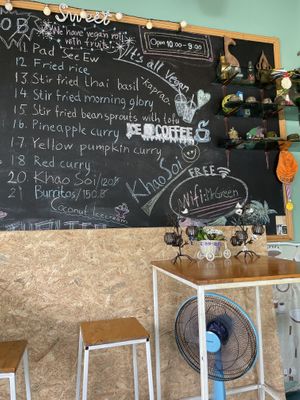 Sweet
We have vegan rolls
with fruits
OPEN 10:00-9:00
It's all Vegan
11. Pad See Ew
12 Fried rice
13. Stir fried thai basil - kaprao
14. Stir fried morning glory
15. Stir fried bean sprouts with tofu
16. Pineapple curry
ICE COFFEES
17. Yellow pumpkin curry
18 Red curry
20 Khao Soi / 120฿
21 Burritos / 150.฿
Coconut Icecream
Khao Soi
FREE
Wifi
Green